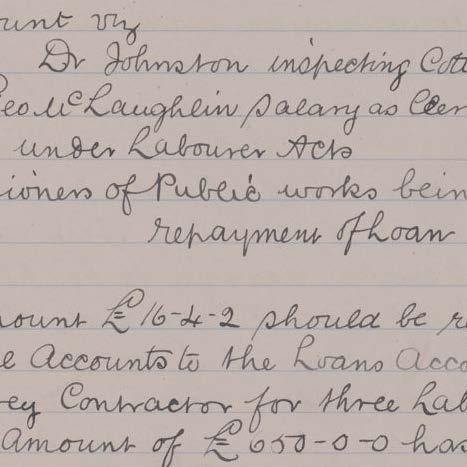 ount viz
Dr Johnston inspecting Cott
Geo McLaughlin salary as Cler
under Labourer Acts
ioners of Public works bein
repayment of Loan
mount £16-4-2 should be re
e Accounts to the Loans Acco
rey Contractor for three Lab
Amount of £650-0-0 has